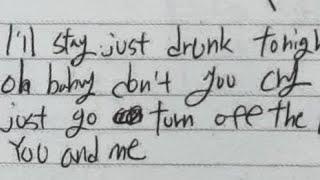 I'll stay just drunk tonigh
oh babay don't you cry
just go turn off the
You and me